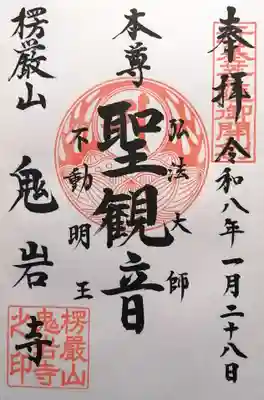 奉拝 令和八年一月二十八日
本尊
聖観音
弘法大師
不動明王
楞厳山
鬼岩寺
楞嚴山
鬼岩寺
之印